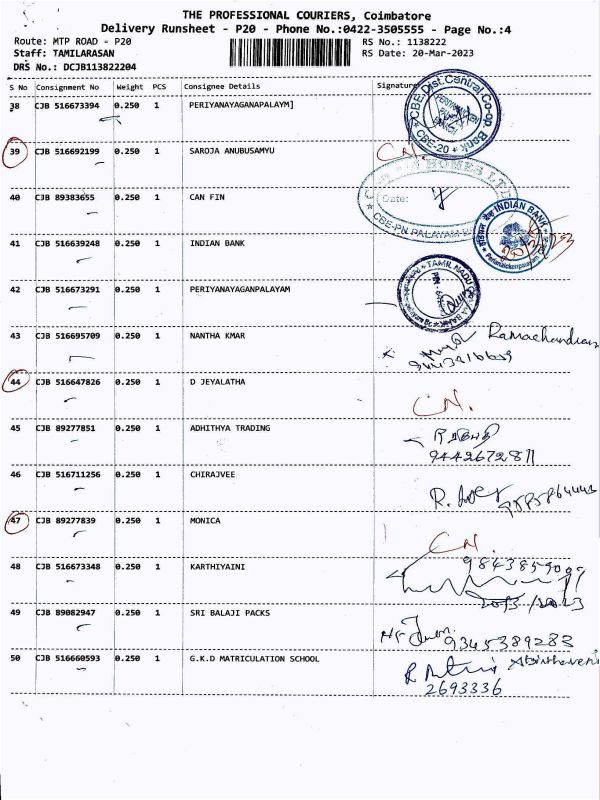 THE PROFESSIONAL COURIERS, Coimbatore
Delivery Runsheet - P20 - Phone No.:0422-3505555 - Page No.:4
Route: MTP ROAD - P20 RS No.: 1138222
Staff: TAMILARASAN RS Date: 20-Mar-2023
DRS No.: DCJB113822204
S No Consignment No Weight PCS Consignee Details Signature
38 CJB 516673394 0.250 1 PERIYANAYAGANAPALAYM]
CBE Dist. Central Co-op Bank
CBE-20
39 CJB 516692199 0.250 1 SAROJA ANUBUSAMYU CN.
HOMES LTD
40 CJB 89383655 0.250 1 CAN FIN Date:
CBE-PN PALAYAM
41 CJB 516639248 0.250 1 INDIAN BANK INDIAN BANK
Perianaickenpalayam
42 CJB 516673291 0.250 1 PERIYANAYAGANPALAYAM TAMIL NADU BANK
43 CJB 516695709 0.250 1 NANTHA KMAR Ramachandran
44 CJB 516647826 0.250 1 D JEYALATHA CN.
45 CJB 89277851 0.250 1 ADHITHYA TRADING
9442672811
46 CJB 516711256 0.250 1 CHIRAJVEE R.
47 CJB 89277839 0.250 1 MONICA CN.
48 CJB 516673348 0.250 1 KARTHIYAINI
49 CJB 89082947 0.250 1 SRI BALAJI PACKS 9345389283
50 CJB 516660593 0.250 1 G.K.D MATRICULATION SCHOOL R
2693336